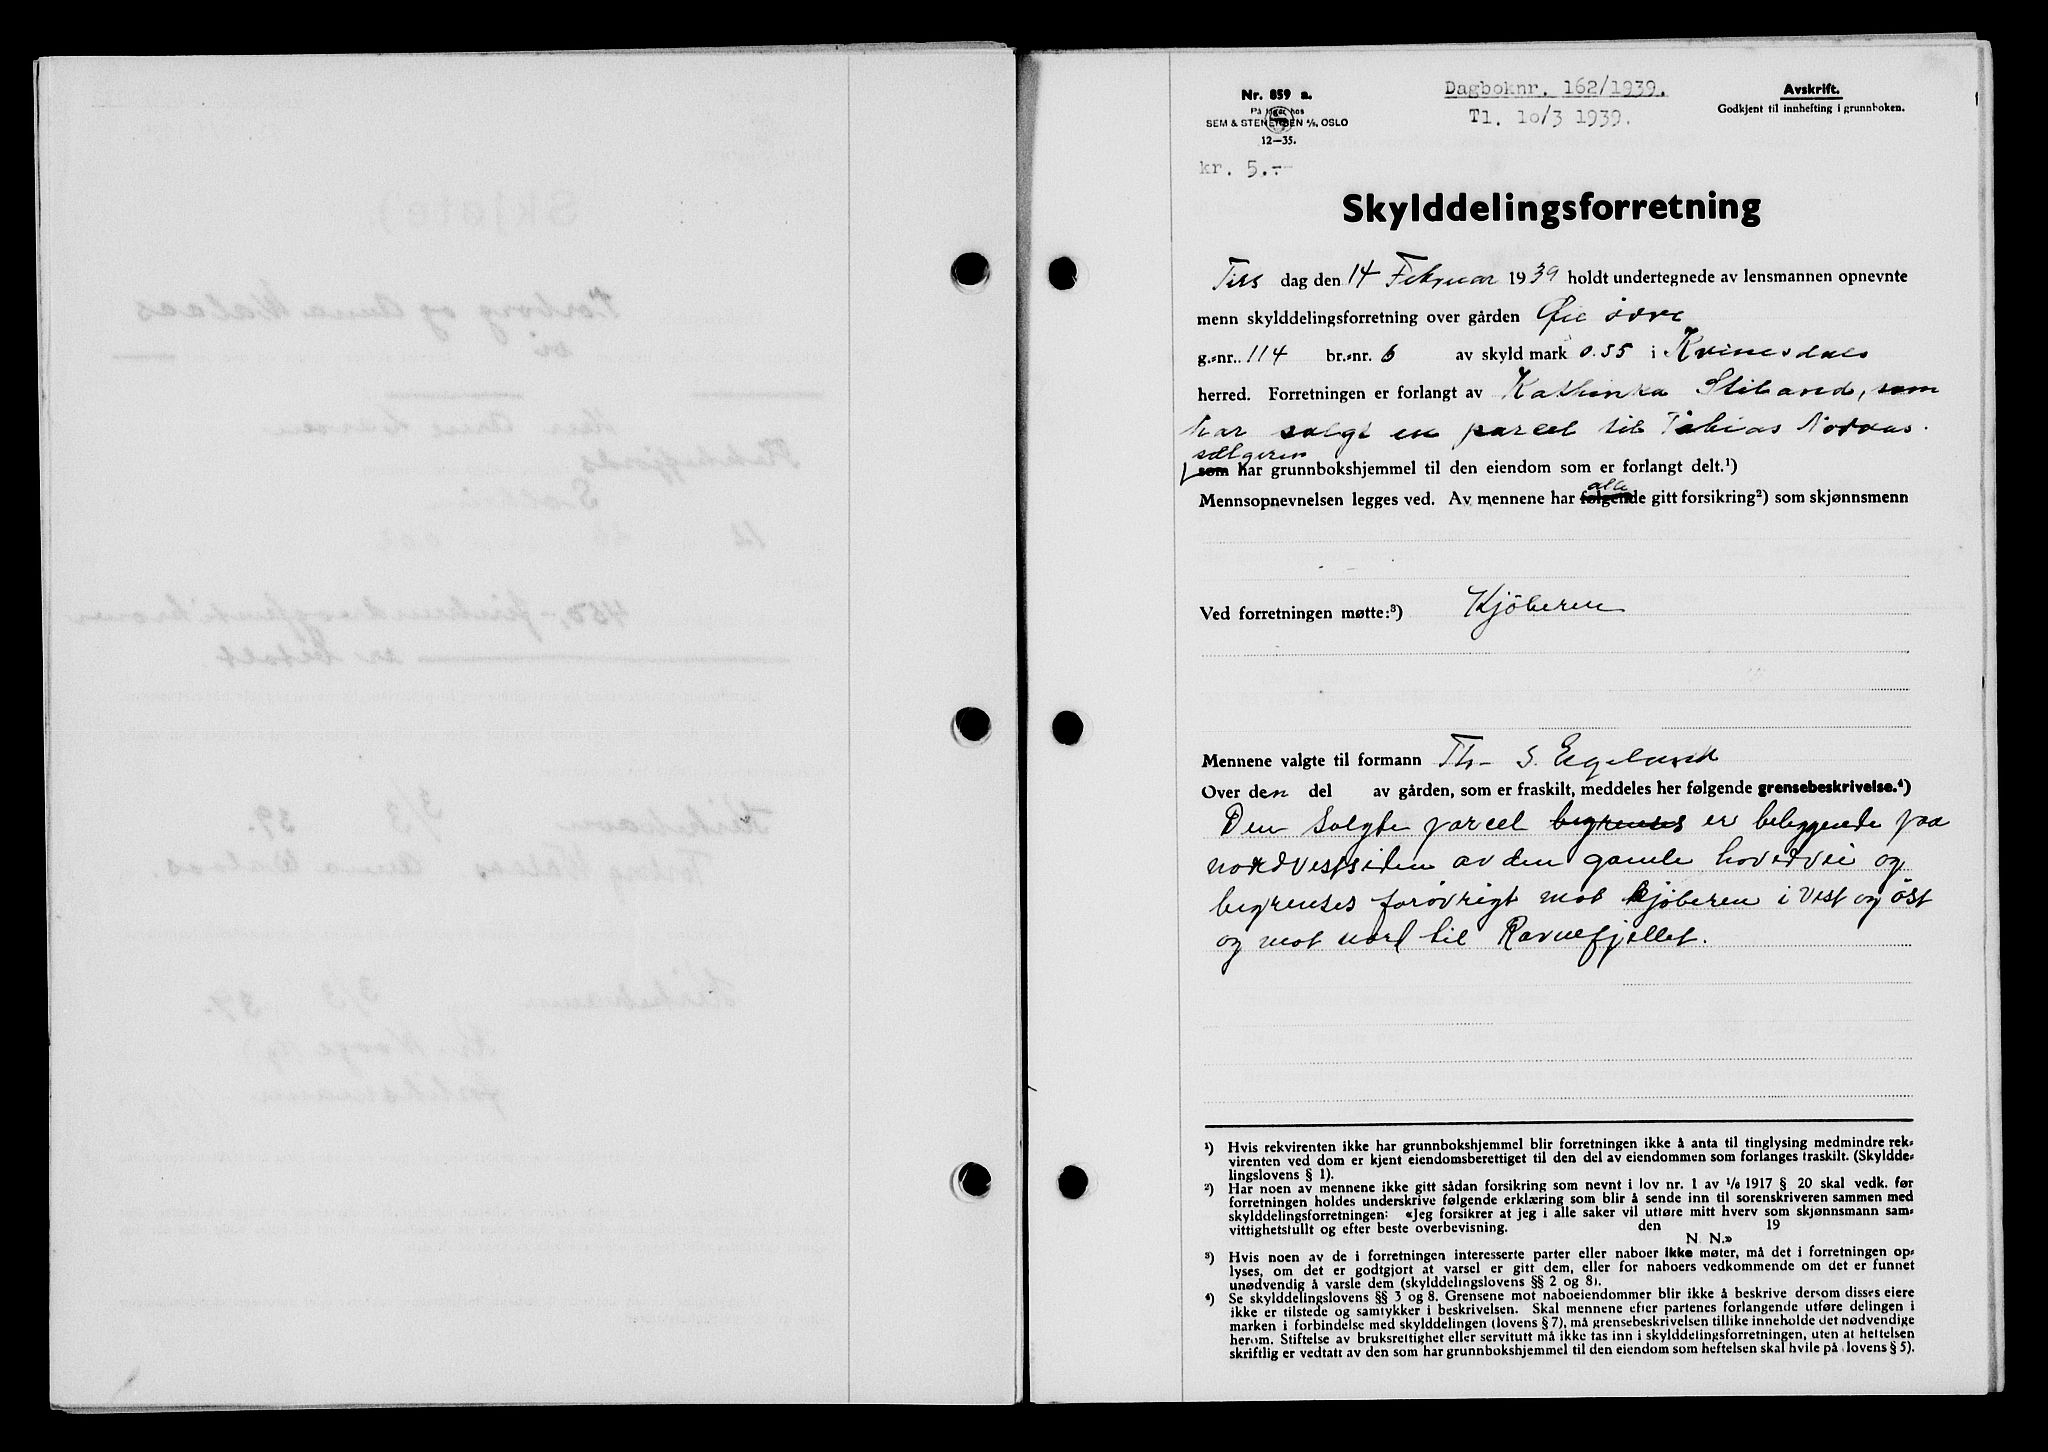 Nr. 859 a.
På lager hos
SEM & STENERSEN A/S, OSLO
12—35.
Dagboknr. 162/1939.
Tl. 10/3 1939.
Avskrift.
Godkjent til innhefting i grunnboken.
kr. 5.--
Skylddelingsforretning
Tirs dag den 14 Februar 1939 holdt undertegnede av lensmannen opnevnte
menn skylddelingsforretning over gården Øie övre
g.-nr. 114 br.-nr. 6 av skyld mark 0.35 i Kvinesdals
herred. Forretningen er forlangt av Kathinka Stiland, som
har solgt en parcel til Tobias Nordaas.
sælgeren
som har grunnbokshjemmel til den eiendom som er forlangt delt.¹)
alle
Mennsopnevnelsen legges ved. Av mennene har følgende gitt forsikring²) som skjønnsmenn
Ved forretningen møtte:³) Kjöberen
Mennene valgte til formann Th. S. Egeland
Over den del av gården, som er fraskilt, meddeles her følgende grensebeskrivelse.⁴)
Den solgte parcel begrenses er beliggende paa
nordvestsiden av den gamle hovedvei og
begrenses forövrigt mot kjöberen i vest og öst
og mot nord til Ravnefjellet.
¹) Hvis rekvirenten ikke har grunnbokshjemmel blir forretningen ikke å anta til tinglysing medmindre rek-
virenten ved dom er kjent eiendomsberettiget til den del av eiendommen som forlanges fraskilt. (Skyldde-
lingslovens § 1).
²) Har noen av mennene ikke gitt sådan forsikring som nevnt i lov nr. 1 av 1/6 1917 § 20 skal vedk. før
forretningen holdes underskrive følgende erklæring som blir å sende inn til sorenskriveren sammen med
skylddelingsforretningen: «Jeg forsikrer at jeg i alle saker vil utføre mitt hverv som skjønnsmann sam-
vittighetsfullt og efter beste overbevisning. den 19
N. N.»
³) Hvis noen av de i forretningen interesserte parter eller naboer ikke møter, må det i forretningen op-
lyses, om det er godtgjort at varsel er gitt dem, eller for naboers vedkommende om det er funnet
unødvendig å varsle dem (skylddelingslovens §§ 2 og 8).
⁴) Se skylddelingslovens §§ 3 og 8. Grensene mot naboeiendommer blir ikke å beskrive dersom disses eiere
ikke er tilstede og samtykker i beskrivelsen. Skal mennene efter partenes forlangende utføre delingen i
marken i forbindelse med skylddelingen (lovens § 7), må grensebeskrivelsen tillike inneholde det nødvendige
herom. Stiftelse av bruksrettighet eller servitutt må ikke tas inn i skylddelingsforretningen, uten at heftelsen
skriftlig er vedtatt av den som har grunnbokshjemmel til den eiendom som heftelsen skal hvile på (lovens § 5).